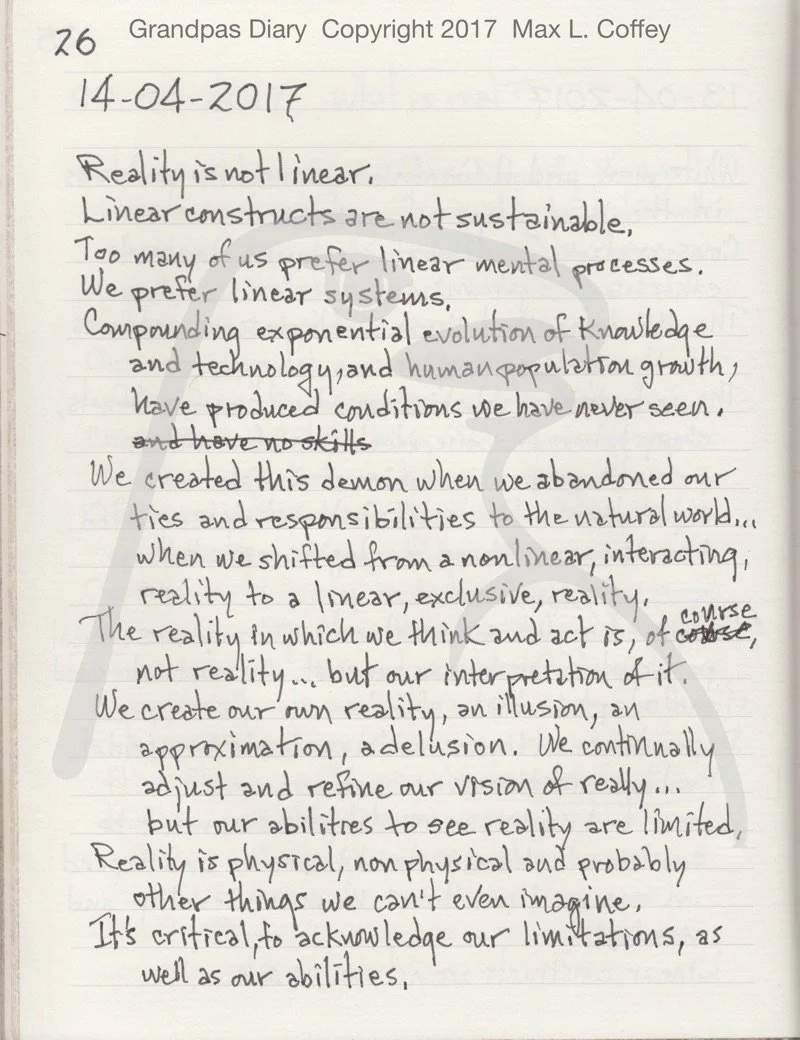 Grandpas Diary Copyright 2017 Max L. Coffey
26
14-04-2017
Reality is not linear.
Linear constructs are not sustainable.
Too many of us prefer linear mental processes.
We prefer linear systems.
Compounding exponential evolution of Knowledge
and technology, and human population growth,
have produced conditions we have never seen.
and have no skills
We created this demon when we abandoned our
ties and responsibilities to the natural world...
when we shifted from a nonlinear, interacting,
reality to a linear, exclusive, reality.
The reality in which we think and act is, of course,
not reality... but our interpretation of it.
We create our own reality, an illusion, an
approximation, a delusion. We continually
adjust and refine our vision of really...
but our abilities to see reality are limited.
Reality is physical, non physical and probably
other things we can't even imagine.
It's critical, to acknowledge our limitations, as
well as our abilities.